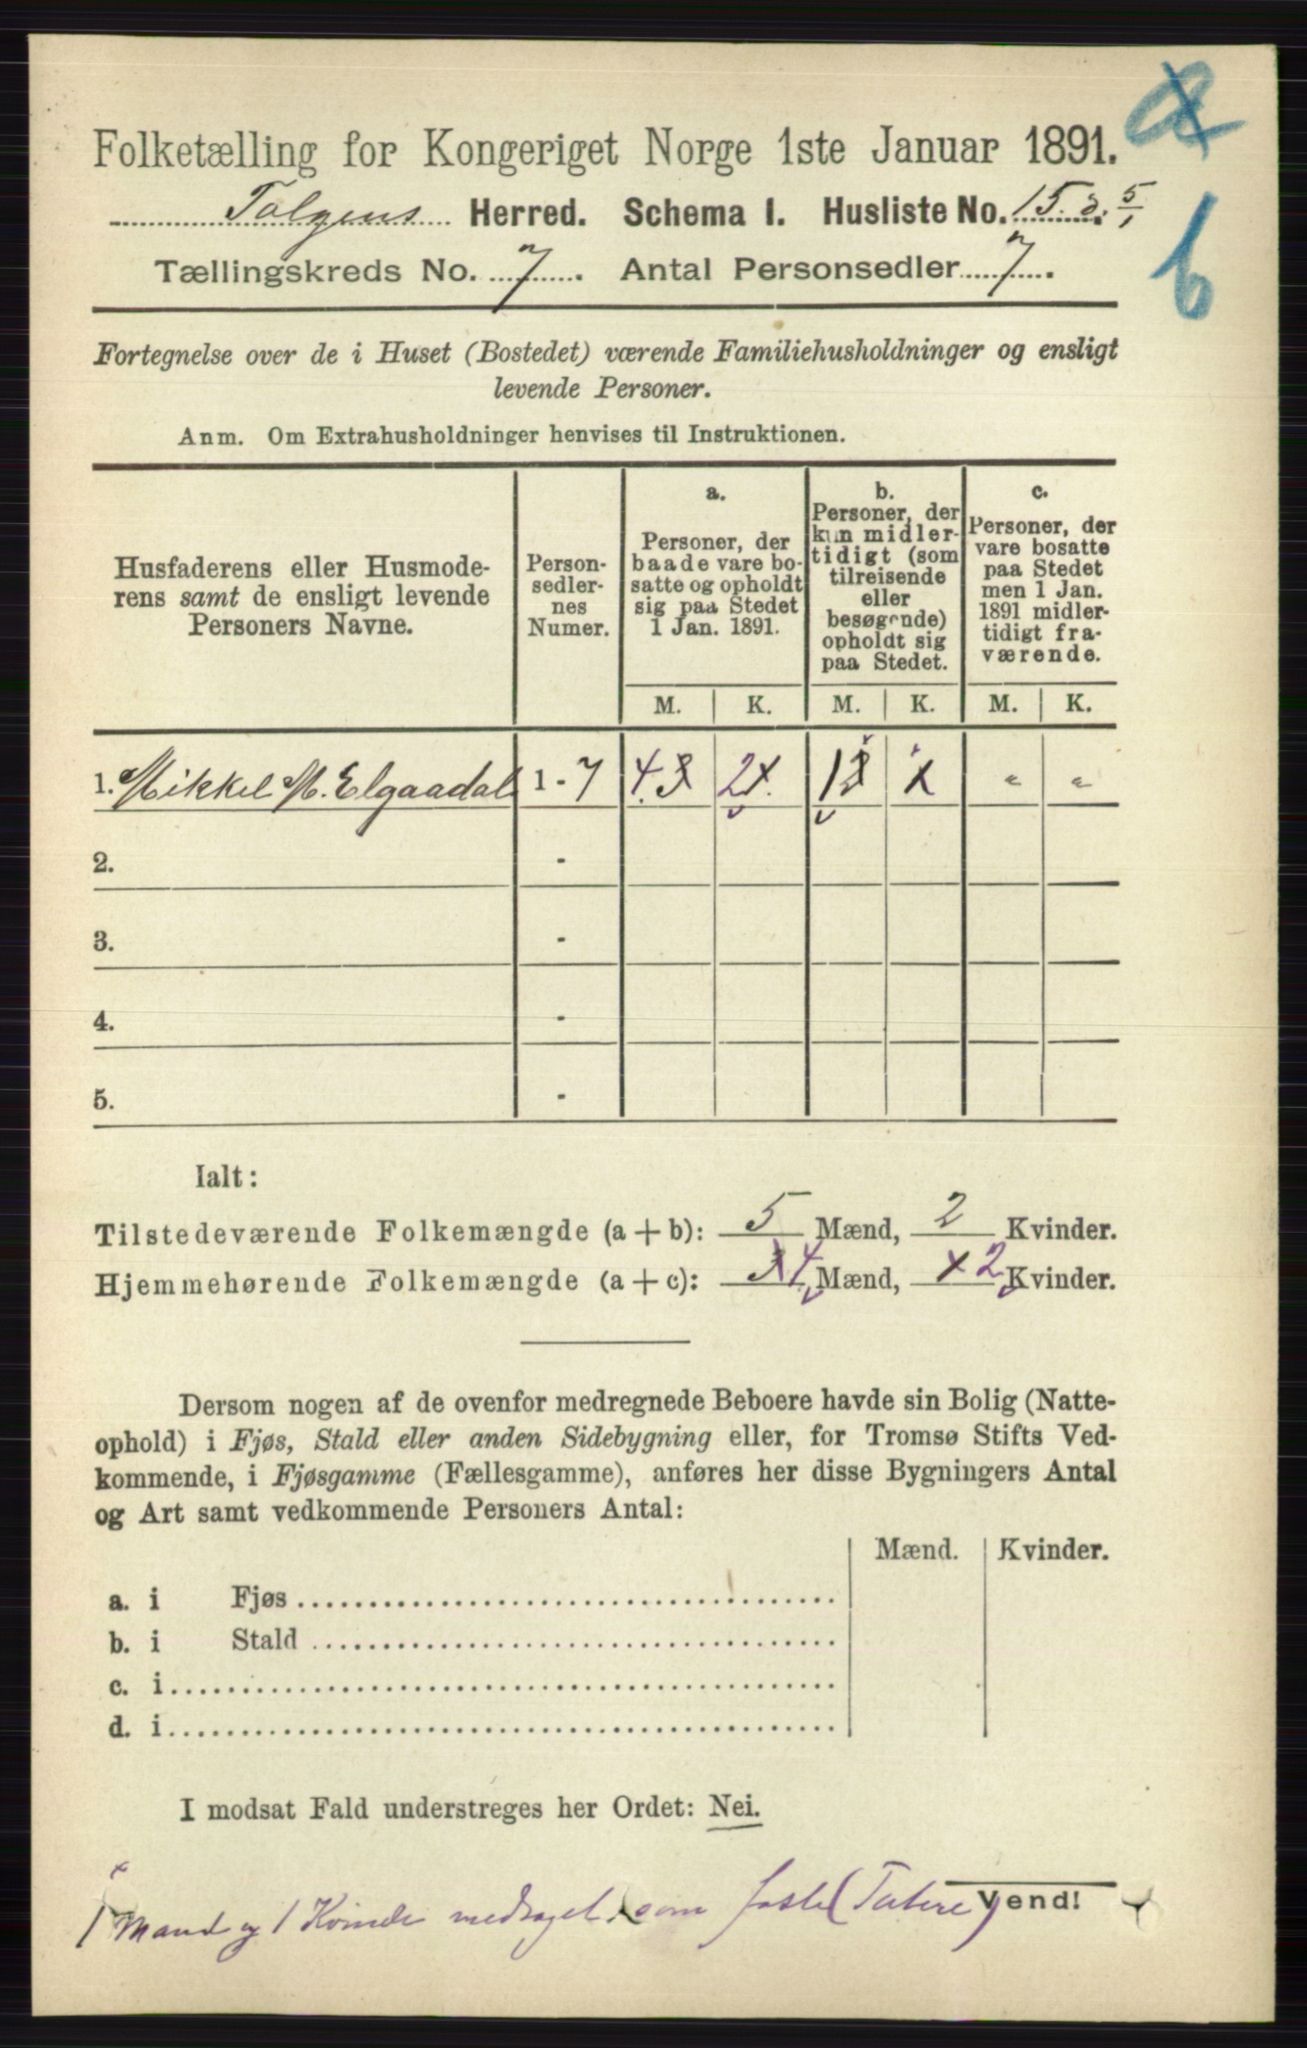 Folketælling for Kongeriget Norge 1ste Januar 1891.
Tolgens Herred. Schema 1. Husliste No. 15.
Tællingskreds No. 7. Antal Personsedler 7.
b
Fortegnelse over de i Huset (Bostedet) værende Familiehusholdninger og ensligt
levende Personer.
Anm. Om Extrahusholdninger henvises til Instruktionen.
Husfaderens eller Husmode-
rens samt de ensligt levende
Personers Navne.
Person-
sedler-
nes
Numer.
a.
Personer, der
baade vare bo-
satte og opholdt
sig paa Stedet
1 Jan. 1891.
b.
Personer, der
kun midler-
tidigt (som
tilreisende
eller
besøgende)
opholdt sig
paa Stedet.
c.
Personer, der
vare bosatte
paa Stedet
men 1 Jan.
1891 midler-
tidigt fra-
værende.
M. K. M. K. M. K.
1. Mikkel M. Elgaadal 1 - 7 4 3 2 1 1 2 1 " "
2. -
3. -
4. -
5. -
Ialt:
Tilstedeværende Folkemængde (a + b): 5 Mænd, 2 Kvinder.
Hjemmehørende Folkemængde (a + c): 3 4 Mænd, 1 2 Kvinder.
Dersom nogen af de ovenfor medregnede Beboere havde sin Bolig (Natte-
ophold) i Fjøs, Stald eller anden Sidebygning eller, for Tromsø Stifts Ved-
kommende, i Fjøsgamme (Fællesgamme), anføres her disse Bygningers Antal
og Art samt vedkommende Personers Antal:
Mænd. Kvinder.
a. i Fjøs
b. i Stald
c. i
d. i
I modsat Fald understreges her Ordet: Nei.
Vend!
1 Mand og 1 Kvinde medtaget som faste (Tatere)